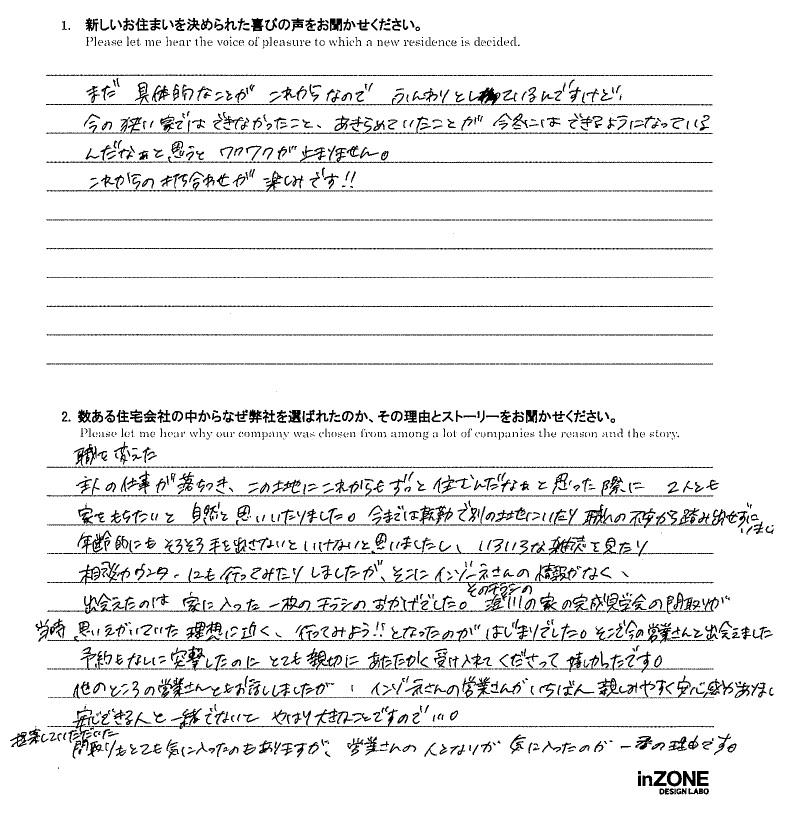 1. 新しいお住まいを決められた喜びの声をお聞かせください。
Please let me hear the voice of pleasure to which a new residence is decided.
まだ 具体的なことが これからなので ふんわりとしているんですけど、
今の狭い家ではできなかったこと、あきらめていたことが 今冬には できるようになっている
んだなぁと思うと ワクワクが止まりません。
これからの打ち合わせが 楽しみです!!
2. 数ある住宅会社の中からなぜ弊社を選ばれたのか、その理由とストーリーをお聞かせください。
Please let me hear why our company was chosen from among a lot of companies the reason and the story.
職を変えた
主人の仕事が落ちつき、この土地にこれからもずっと住むんだなぁと思った際に 2人とも
家をもちたいと 自然と思いいたりました。今までは転勤で別の土地にいたり 職への不安から踏み出せずにいまし
年齢的にもそろそろ手を出さないといけないと思いましたし、いろいろな雑誌を見たり
相談カウンターにも行ってみたりしましたが、そこにインゾーネさんの情報がなく、
出会えたのは 家に入った一枚のチラシのおかげでした。そのチラシの 澄川の家の完成見学会の間取りが
当時 思いえがいていた理想に近く、行ってみよう!!となったのが はじまりでした。そこで今の営業さんと出会えました
予約もないに突撃したのに とても親切に あたたかく受け入れてくださって 嬉しかったです。
他のところの営業さんともお話ししましたが、インゾーネさんの営業さんがいちばん 親しみやすく安心感がありまし
安心できる人と一緒でないと やはり大きなことですので…。
提案していただいた
間取りもとても気に入ったのもありますが、営業さんの 人となりが 気に入ったのが 一番の理由です。
inZONE
DESIGN LABO